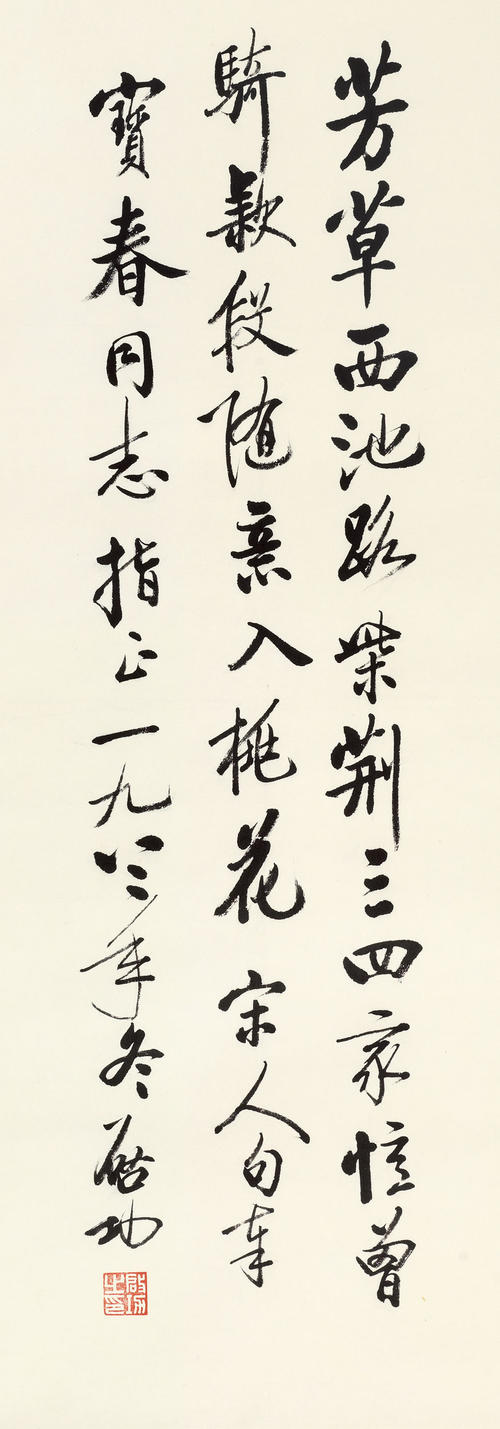 芳草西池路柴荆三四家憶曾
騎款段随意入桃花 宋人句奉
寶春同志指正一九八二年冬啟功
啟功之印